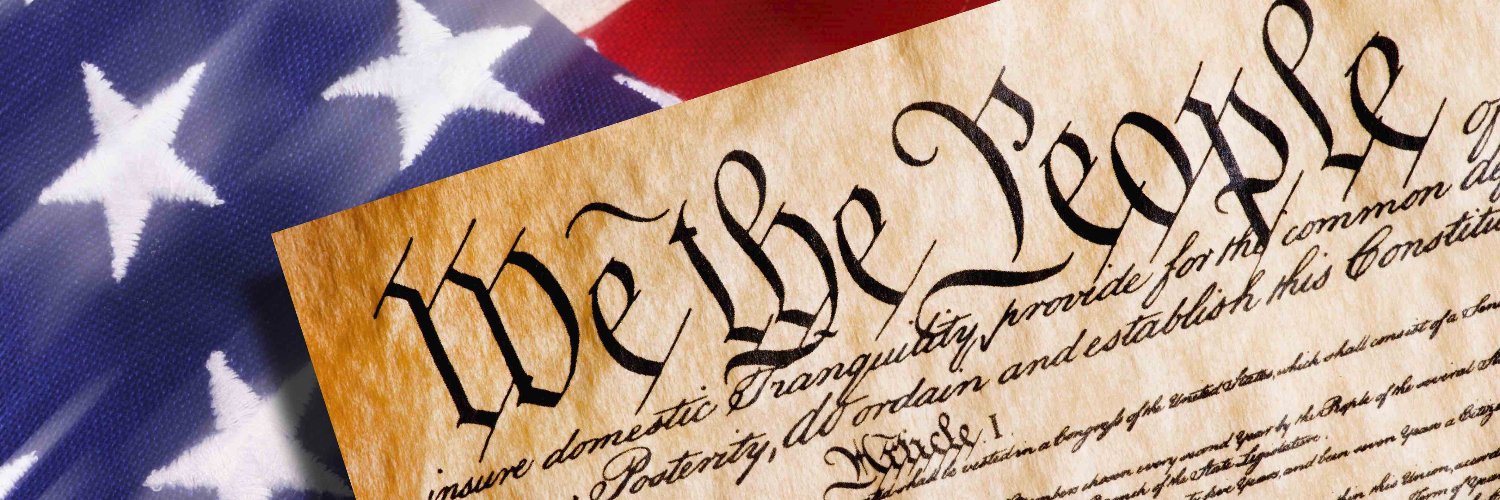 We the People of
insure domestic Tranquility, provide for the common de
Posterity, do ordain and establish this Constitu
Article I
vested in a Congress of the United States, which shall consist of a Sen
chosen every second Year by the People of the several
Branch of the State Legislature.
and been seven Years a Citize
this Union, accord